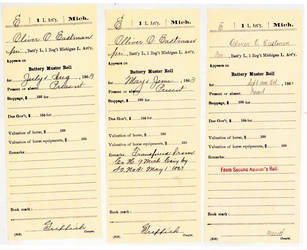 E | 1 L. Art'y. | Mich.
Oliver O. Eastman
Pri., Batt'y L, 1 Reg't Michigan L. Art'y.
Appears on
Battery Muster Roll
for July & Aug, 1863
Present or absent Present
Stoppage, $ 100 for
Due Gov't, $ 100 for
Valuation of horse, $ 100
Valuation of horse equipments, $ 100
Remarks:
Book mark:
Copyist.
E | 1 L. Art'y. | Mich.
Oliver O. Eastman
Pri., Batt'y L, 1 Reg't Michigan L. Art'y.
Appears on
Battery Muster Roll
for May & June, 1863
Present or absent Present
Stoppage, $ 100 for
Due Gov't, $ 100 for
Valuation of horse, $ 100
Valuation of horse equipments, $ 100
Remarks: Transferred from
Co. H. 9 Mich Cav by
S.O. No. May 1863
Book mark:
Copyist.
E | 1 L. Art'y. | Mich.
Oliver O. Eastman
Batt'y L, 1 Reg't Michigan L. Art'y.
Appears on
Battery Muster Roll
for Sept and Oct, 1863
Present or absent
Stoppage, $ 100 for
Due Gov't, $ 100 for
Valuation of horse, $ 100
Valuation of horse equipments, $ 100
Remarks:
From Second Auditor's Roll.
Book mark:
Copyist.